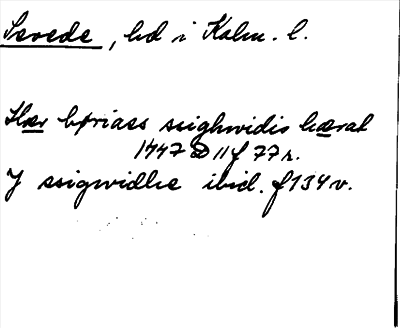 Sevede, hd i Kalm. l.
Hær børiass ssighwidis hæral
1447 D 11 f 77 r.
J ssigwidhe ibid. f 134 v.